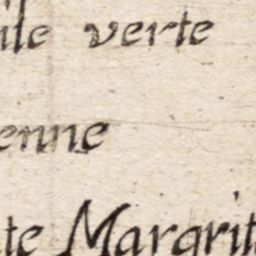 ile verte
enne
te Margrit